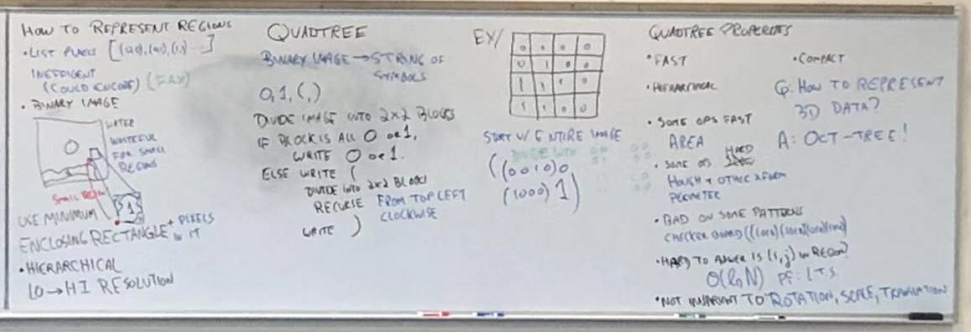 HOW TO REPRESENT REGIONS
• LIST PIXELS
INEFFICIENT
(COULD ENCODE) (FAX)
• BINARY IMAGE
WATER
WASTEFUL
FOR SMALL
REGIONS
0
SMALL REGION
1
USE MINIMUM
ENCLOSING RECTANGLE + PIXELS
IN IT
• HIERARCHICAL
LO → HI RESOLUTION
QUADTREE
BINARY IMAGE → STRING OF
SYMBOLS
0, 1, (, )
DIVIDE IMAGE INTO 2x2 BLOCKS
IF BLOCK IS ALL 0 OR 1,
WRITE 0 OR 1.
ELSE WRITE (
DIVIDE INTO 2x2 BLOCKS
RECURSE FROM TOP LEFT
CLOCKWISE
WRITE )
EX/
0 0 0 0
0 1 0 0
1 1 1 0
1 1 0 0
START W/ ENTIRE IMAGE
DIVIDE INTO
((0010)0
(1000)1)
QUADTREE PROPERTIES
• FAST
• COMPACT
• HIERARCHICAL
• SOME OPS FAST
AREA
• SOME OPS HARD
HOUGH & OTHER XFORM
PERIMETER
• BAD ON SOME PATTERNS
CHECKERBOARD
• HARD TO ANSWER IS (i,j) IN REGION?
PF: L.T.S.
• NOT INVARIANT TO ROTATION, SCALE, TRANSLATION
Q: HOW TO REPRESENT
3D DATA?
A: OCT-TREE!